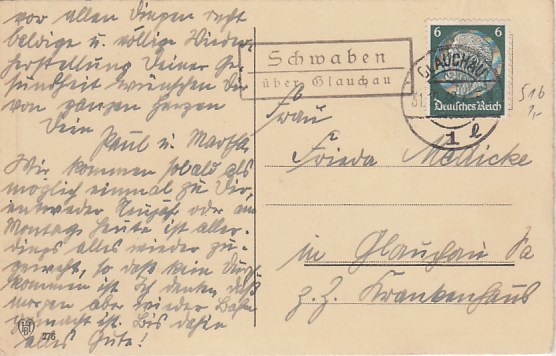 vor allen Dingen recht
baldige u. völlige Wieder-
herstellung Deiner Ge-
sundheit wünschen Dir
von ganzen Herzen
Dein
Paul u. Martha.
Wir kommen sobald als
möglich einmal zu Dir,
entweder Neujahr oder am
Montag. Heute ist aller-
dings alles wieder zu-
geweht, so daß kein
kommen ist. Ich denke, daß
morgen aber wieder Bahn
gemacht ist. Bis dahin
alles Gute!
276
Schwaben
über Glauchau
6 6
Deutsches Reich
GLAUCHAU
31.
1
Frau
Frieda
in Glauchau Sa
z. Z. Krankenhaus
516